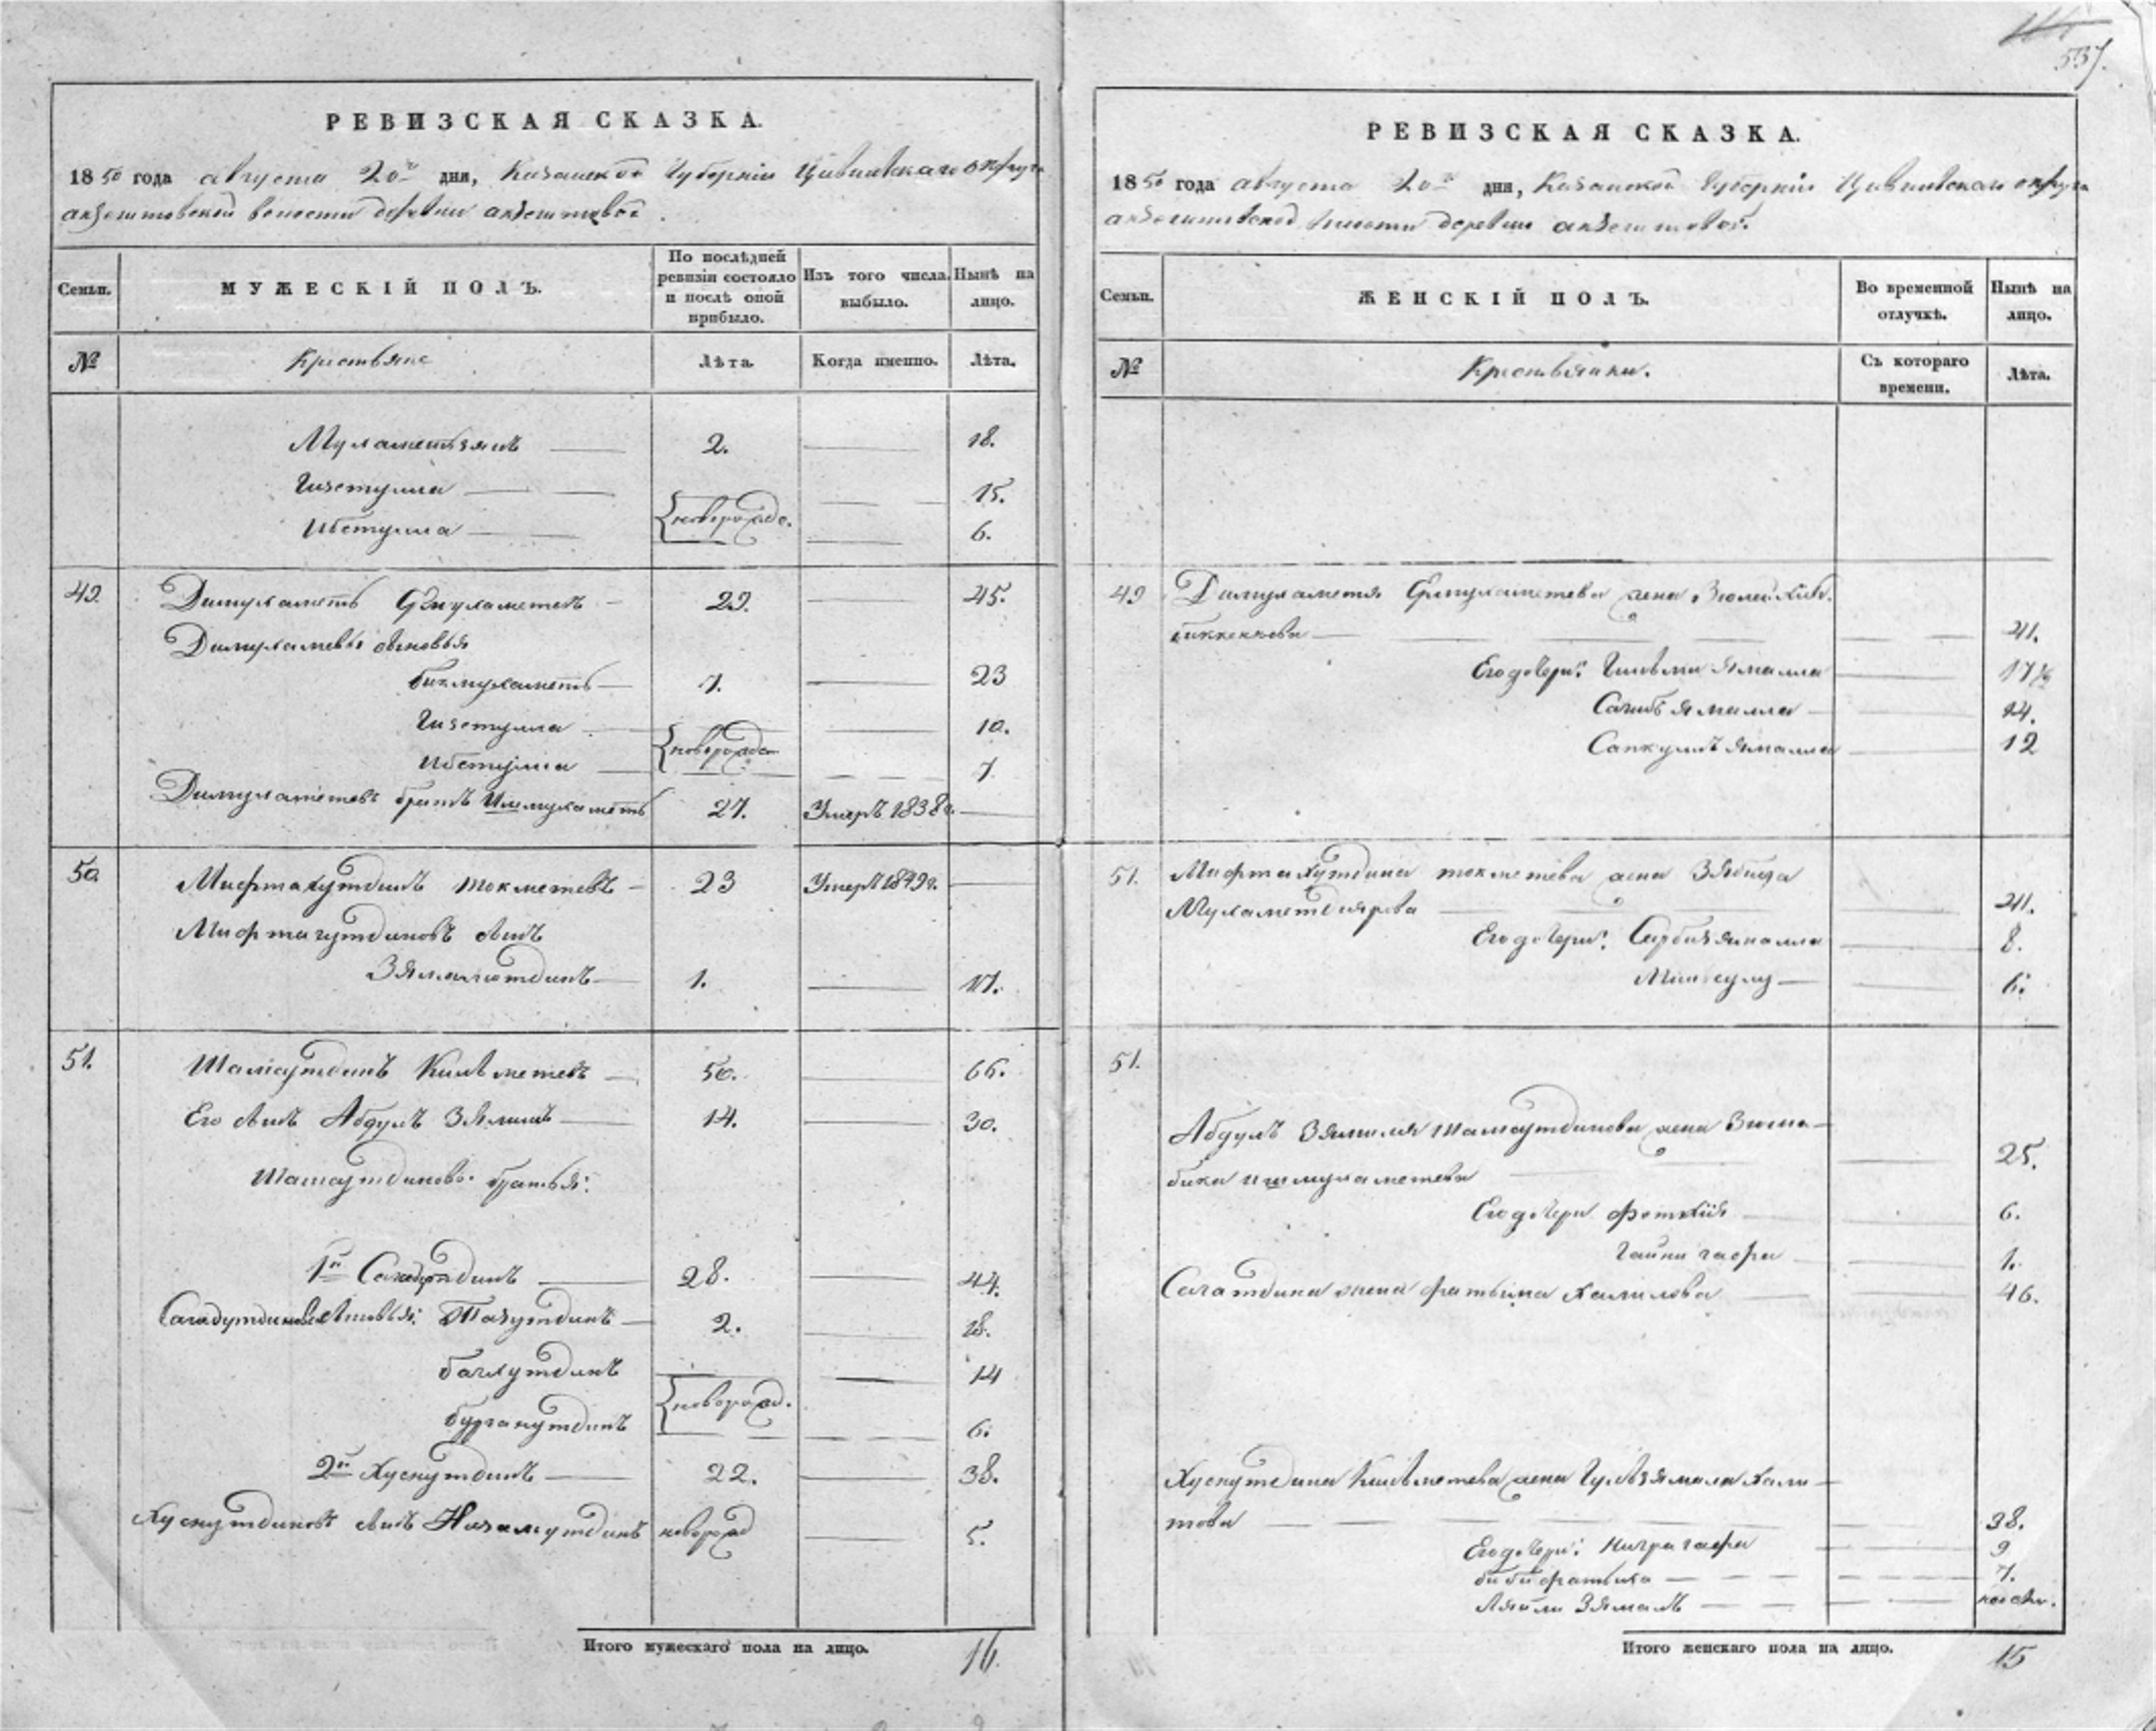 557.
РЕВИЗСКАЯ СКАЗКА.
1850 года августа 20го дни, Казанской Губернiи Цивильскаго округа
акзегитовской волости деревни акзегитовой.
Семьи.
МУЖЕСКIЙ ПОЛЪ.
По послѣдней ревизiи состояло и послѣ оной прибыло.
Изъ того числа выбыло.
Нынѣ на лицо.
№
Крестьяне
Лѣта.
Когда именно.
Лѣта.
Мухаметзянъ 2. 18.
Гизетулла 15.
новорожде.
Ибетулла 6.
49. Динмухаметъ 29. 45.
Динмухаметевы сыновья
бикмухаметъ 7. 23
Гизетулла 10.
новорожде
Ибетулла 7
Динмухаметевъ братъ Ишмухаметъ 27. Умеръ 1838г.
50 Мифтахутдинъ токметевъ 23 Умеръ 1849г.
Мифтахутдиновъ сынъ
Зямалетдинъ 1. 17.
51. Шамсутдинъ Кильметевъ 50. 66.
Его сынъ Абдулъ Зялилъ 14. 30.
Шамсутдиновы братья:
1й Сагадутдинъ 28. 44.
Сагадутдиновы сыновья: Тазутдинъ 2. 18.
багаутдинъ 14
новорожд.
бурганутдинъ 6.
2й Хуснутдинъ 22. 38.
Хуснутдиновъ сынъ Низамутдинъ новорожд 5.
Итого мужескаго пола на лицо. 16.
РЕВИЗСКАЯ СКАЗКА.
1850 года августа 20го дни, Казанской Губернiи Цивильскаго округа
акзегитовской волости деревни акзегитовой.
Семьи.
ЖЕНСКIЙ ПОЛЪ.
Во временной отлучкѣ.
Нынѣ на лицо.
№
Крестьянки.
Съ котораго времени.
Лѣта.
49 Динмухаметя жена
биккенкова 41.
Его дочери: Гильми ямалла 17
Сагиб ямалла 14.
ямалла 12
51. Мифтахутдина токметева жена Зябида
Мухаметдиярова 41.
Его дочери: ямалла 8.
Минсулу 6.
51.
Абдулъ Зялиля Шамсутдинова жена Зюма-
бика ишмухаметева 25.
Его дочери Фетхiя 6.
Гайни гафи 1.
жена Фатьима Халилова 46.
Хуснутдина Кильметева жена Гульзямала Хали-
това 38.
Его дочери: гафи 9
биби фатьиха 7.
Ляйли Зямалъ
Итого женскаго пола на лицо. 15